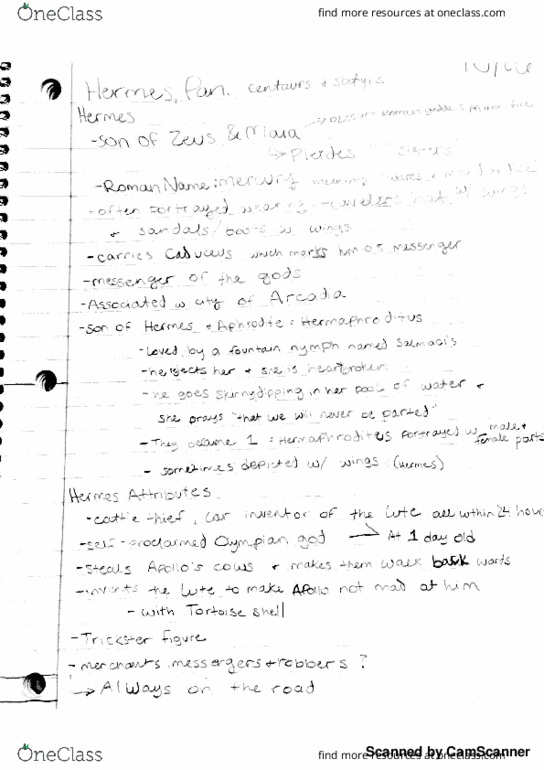 OneClass
find more resources at oneclass.com
Hermes, Pan. centaurs + satyrs
Hermes
- son of Zeus & Maia
↳ Pleides sisters
- Roman Name: mercury meaning
- often portrayed wearing travelers hat w/ wings
+ sandals/boots w wings
- carries Caduceus which marks him as messenger
- messenger of the gods
- Associated w city of Arcadia
- son of Hermes + Aphrodite: Hermaphroditus
- loved by a fountain nymph named Salmacis
- he rejects her + she is heartbroken
- he goes skinnydipping in her pool of water +
she prays "that we will never be parted"
- They become 1: Hermaphroditus portrayed w male + female parts
- sometimes depicted w/ wings (Hermes)
Hermes Attributes
- cattle thief, liar inventor of the lute all within 24 hours
- self-proclaimed Olympian god → At 1 day old
- steals Apollo's cows + makes them walk backwards
- invents the lute to make Apollo not mad at him
- with Tortoise shell
- Trickster figure
- merchants messengers + robbers?
→ Always on the road
OneClass
find more resources at oneclass.com
Scanned by CamScanner